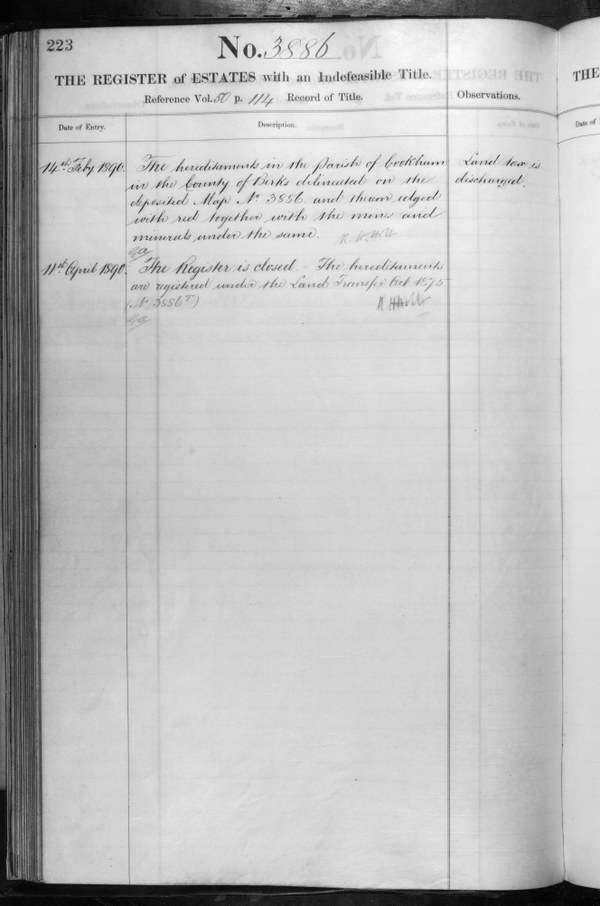 223
No. 3886
THE REGISTER of ESTATES with an Indefeasible Title.
Reference Vol. 50 p. 114 Record of Title.
Observations.
Date of Entry.
Description.
14th Feby 1890.
The hereditaments in the Parish of Cookham
in the County of Berks delineated on the
deposited Map No 3886 and thereon edged
with red together with the mines and
minerals under the same.
Land tax is
discharged.
11th April 1890.
The Register is closed - The hereditaments
are registered under the Land Transfer Act 1875
(No 3886T)
THE
Date of